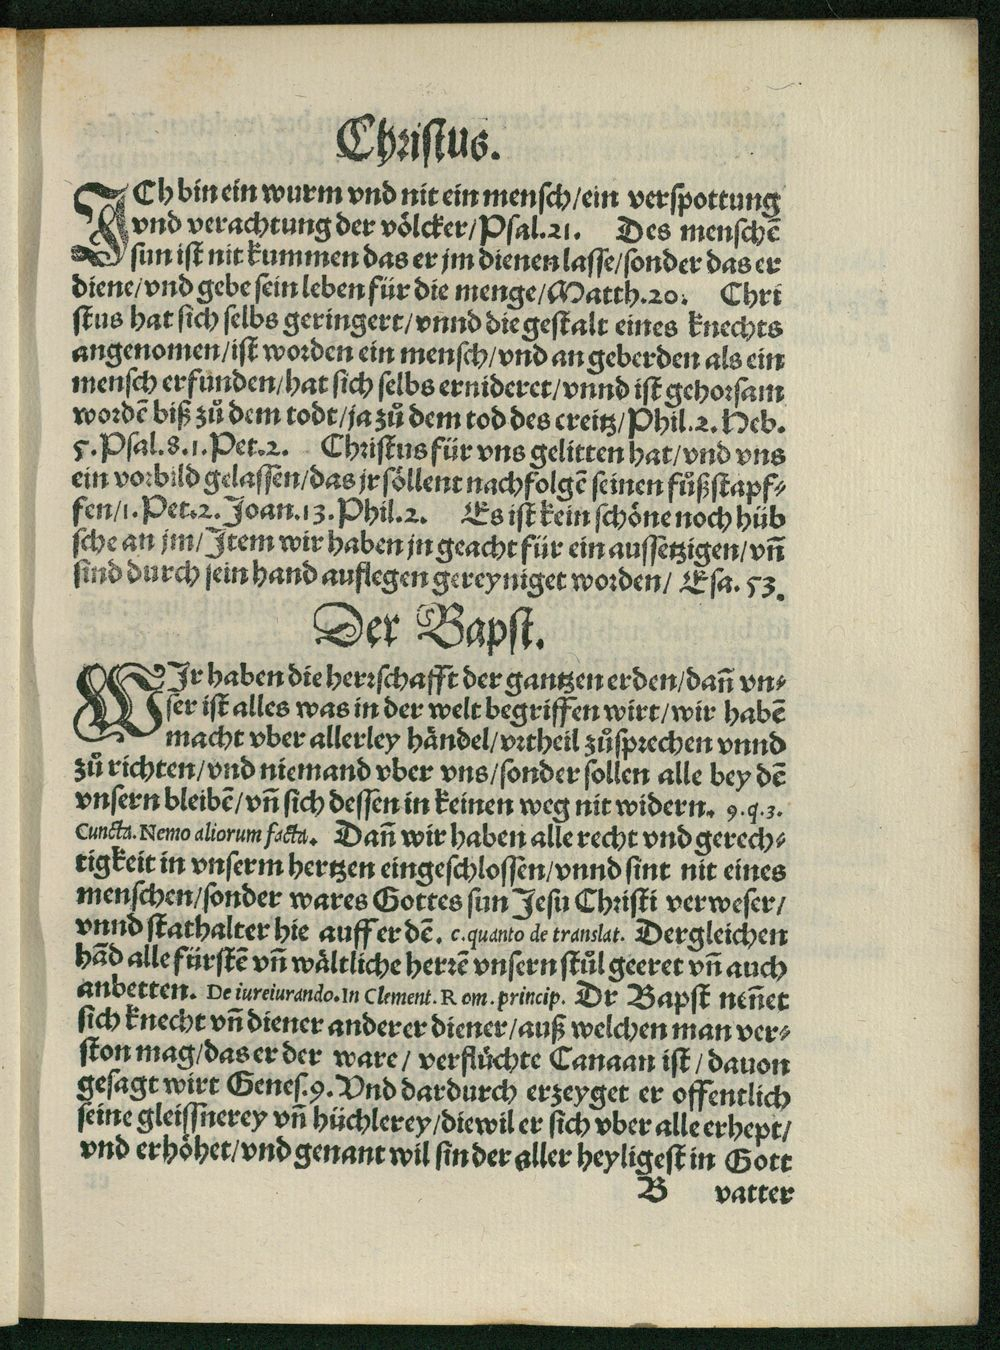 Christus.
ICh bin ein wurm vnd nit ein mensch/ein verspottung
vnd verachtung der völcker/Psal.21. Des menschē
sun ist nit kummen das er jm dienen lasse/sonder das er
diene/vnd gebe sein leben für die menge/Matth.20. Chri
stus hat sich selbs geringert/vnnd die gestalt eines knechts
angenomen/ist worden ein mensch/vnd an geberden als ein
mensch erfunden/hat sich selbs ernideret/vnnd ist gehorsam
wordē biß zů dem todt/ja zů dem tod des creitz/Phil.2.Heb.
5.Psal.8.1.Pet.2. Christus für vns gelitten hat/vnd vns
ein vorbild gelassen/das jr söllent nachfolgē seinen fůßstapf-
fen/1.Pet.2.Joan.13.Phil.2. Es ist kein schöne noch hüb
sche an jm/Item wir haben jn geacht für ein aussetzigen/vñ
sind durch sein hand auflegen gereyniget worden/ Esa.53.
Der Bapst.
WIr haben die herrschafft der gantzen erden/dañ vn-
ser ist alles was in der welt begriffen wirt/wir habē
macht vber allerley händel/vrtheil zůsprechen vnnd
zů richten/vnd niemand vber vns/sonder sollen alle bey dē
vnsern bleibē/vñ sich dessen in keinen weg nit widern. 9.q.3.
Cuncta.Nemo aliorum facta. Dañ wir haben alle recht vnd gerech-
tigkeit in vnserm hertzen eingeschlossen/vnnd sint nit eines
menschen/sonder wares Gottes sun Jesu Christi verweser/
vnnd stathalter hie auff erdē. c.quanto de translat. Dergleichen
hād alle fürstē vñ wältliche herrē vnsern stůl geeret vñ auch
anbetten. De iureiurando.In Clement.Rom.princip. Dr Bapst neñet
sich knecht vñ diener anderer diener/auß welchen man ver-
ston mag/das er der ware/ verflůchte Canaan ist/dauon
gesagt wirt Genes.9.Vnd dardurch erzeyget er offentlich
seine gleissnerey vñ hüchlerey/diewil er sich vber alle erhept/
vnd erhöhet/vnd genant wil sin der aller heyligest in Gott
B vatter